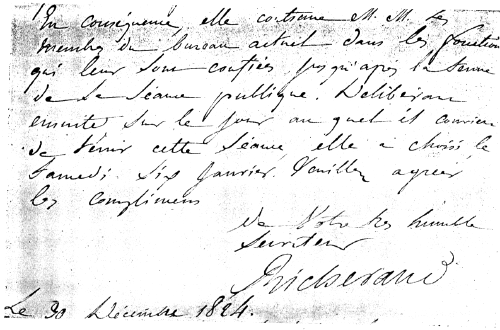 En conséquence, elle continue M. M. les
membres du bureau actuel dans les fonctions
qui leur sont confiées jusqu'après la tenue
de sa séance publique. Délibérant
ensuite sur le jour au quel il convient
de tenir cette séance, elle a choisi le
Samedi six Janvier. Veuillez agréer
les complimens
de Votre très humble
Serviteur
Richerand
Le 30 Décembre 1824.